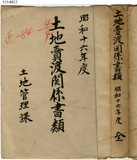 昭和十六年度
土地賣渡関係書類
土地管理課
土地賣渡関係書類
昭和十六年度
全